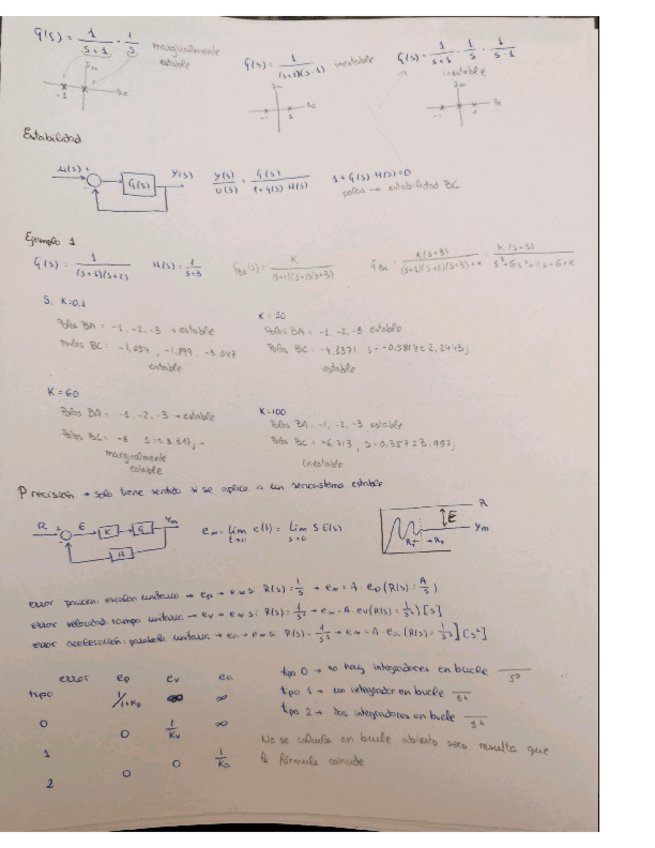 G(s) = 1/(s+1) · 1/s marginalmente estable
G(s) = 1/((s+1)(s-1)) inestable
G(s) = 1/(s+1) · 1/s · 1/(s-1) inestable
Im Re -1
Im Re -1
Im Re -1
Estabilidad
u(s) + G(s) Y(s) Y(s)/U(s) = G(s)/(1+G(s) H(s)) 1+G(s) H(s)=0
polos → estabilidad BC
Ejemplo 1
G(s) = 1/((s+1)(s+2)) H(s) = 1/(s+3) G_BA(s) = K/((s+1)(s+2)(s+3)) G_BC = K(s+3)/((s+1)(s+2)(s+3)+K) = K(s+3)/(s³+6s²+11s+6+K)
Si K=0,1
Polos BA = -1, -2, -3 → estable
Polos BC = -1,054, -1,899, -3,047
estable
K = 20
Polos BA = -1, -2, -3 estable
Polos BC = -4,8371 s = -0,5814 ± 2,2443j
estable
K = 60
Polos BA = -1, -2, -3 → estable
Polos BC = -6 s = ± 3,317j →
marginalmente
estable
K=100
Polos BA = -1, -2, -3 estable
Polos BC = -6,713, s = 0,357 ± 3,957j
inestable
Precisión → solo tiene sentido si se aplica a un servosistema estable
R + E K G Ym H e∞ = lim t→∞ e(t) = lim s→0 S E(s)
R E Ym
error posicion: escalon unitario → ep → e∞ si R(s) = 1/s → e∞ = A · ep (R(s) = A/s)
error velocidad: rampa unitaria → ev → e∞ si R(s) = 1/s² → e∞ = A · ev (R(s) = 1/s²) [s]
error aceleracion: parabola unitaria → ea → e∞ si R(s) = 1/s³ → e∞ = A · ea (R(s) = 1/s³) [s²]
error ep ev ea
tipo
0 1/1+Kp ∞ ∞
1 0 1/Kv ∞
2 0 0 1/Ka
tipo 0 → no hay integradores en bucle /s⁰
tipo 1 → un integrador en bucle /s¹
tipo 2 → dos integradores en bucle /s²
No se calcula en bucle abierto pero resulta que
la fórmula coincide